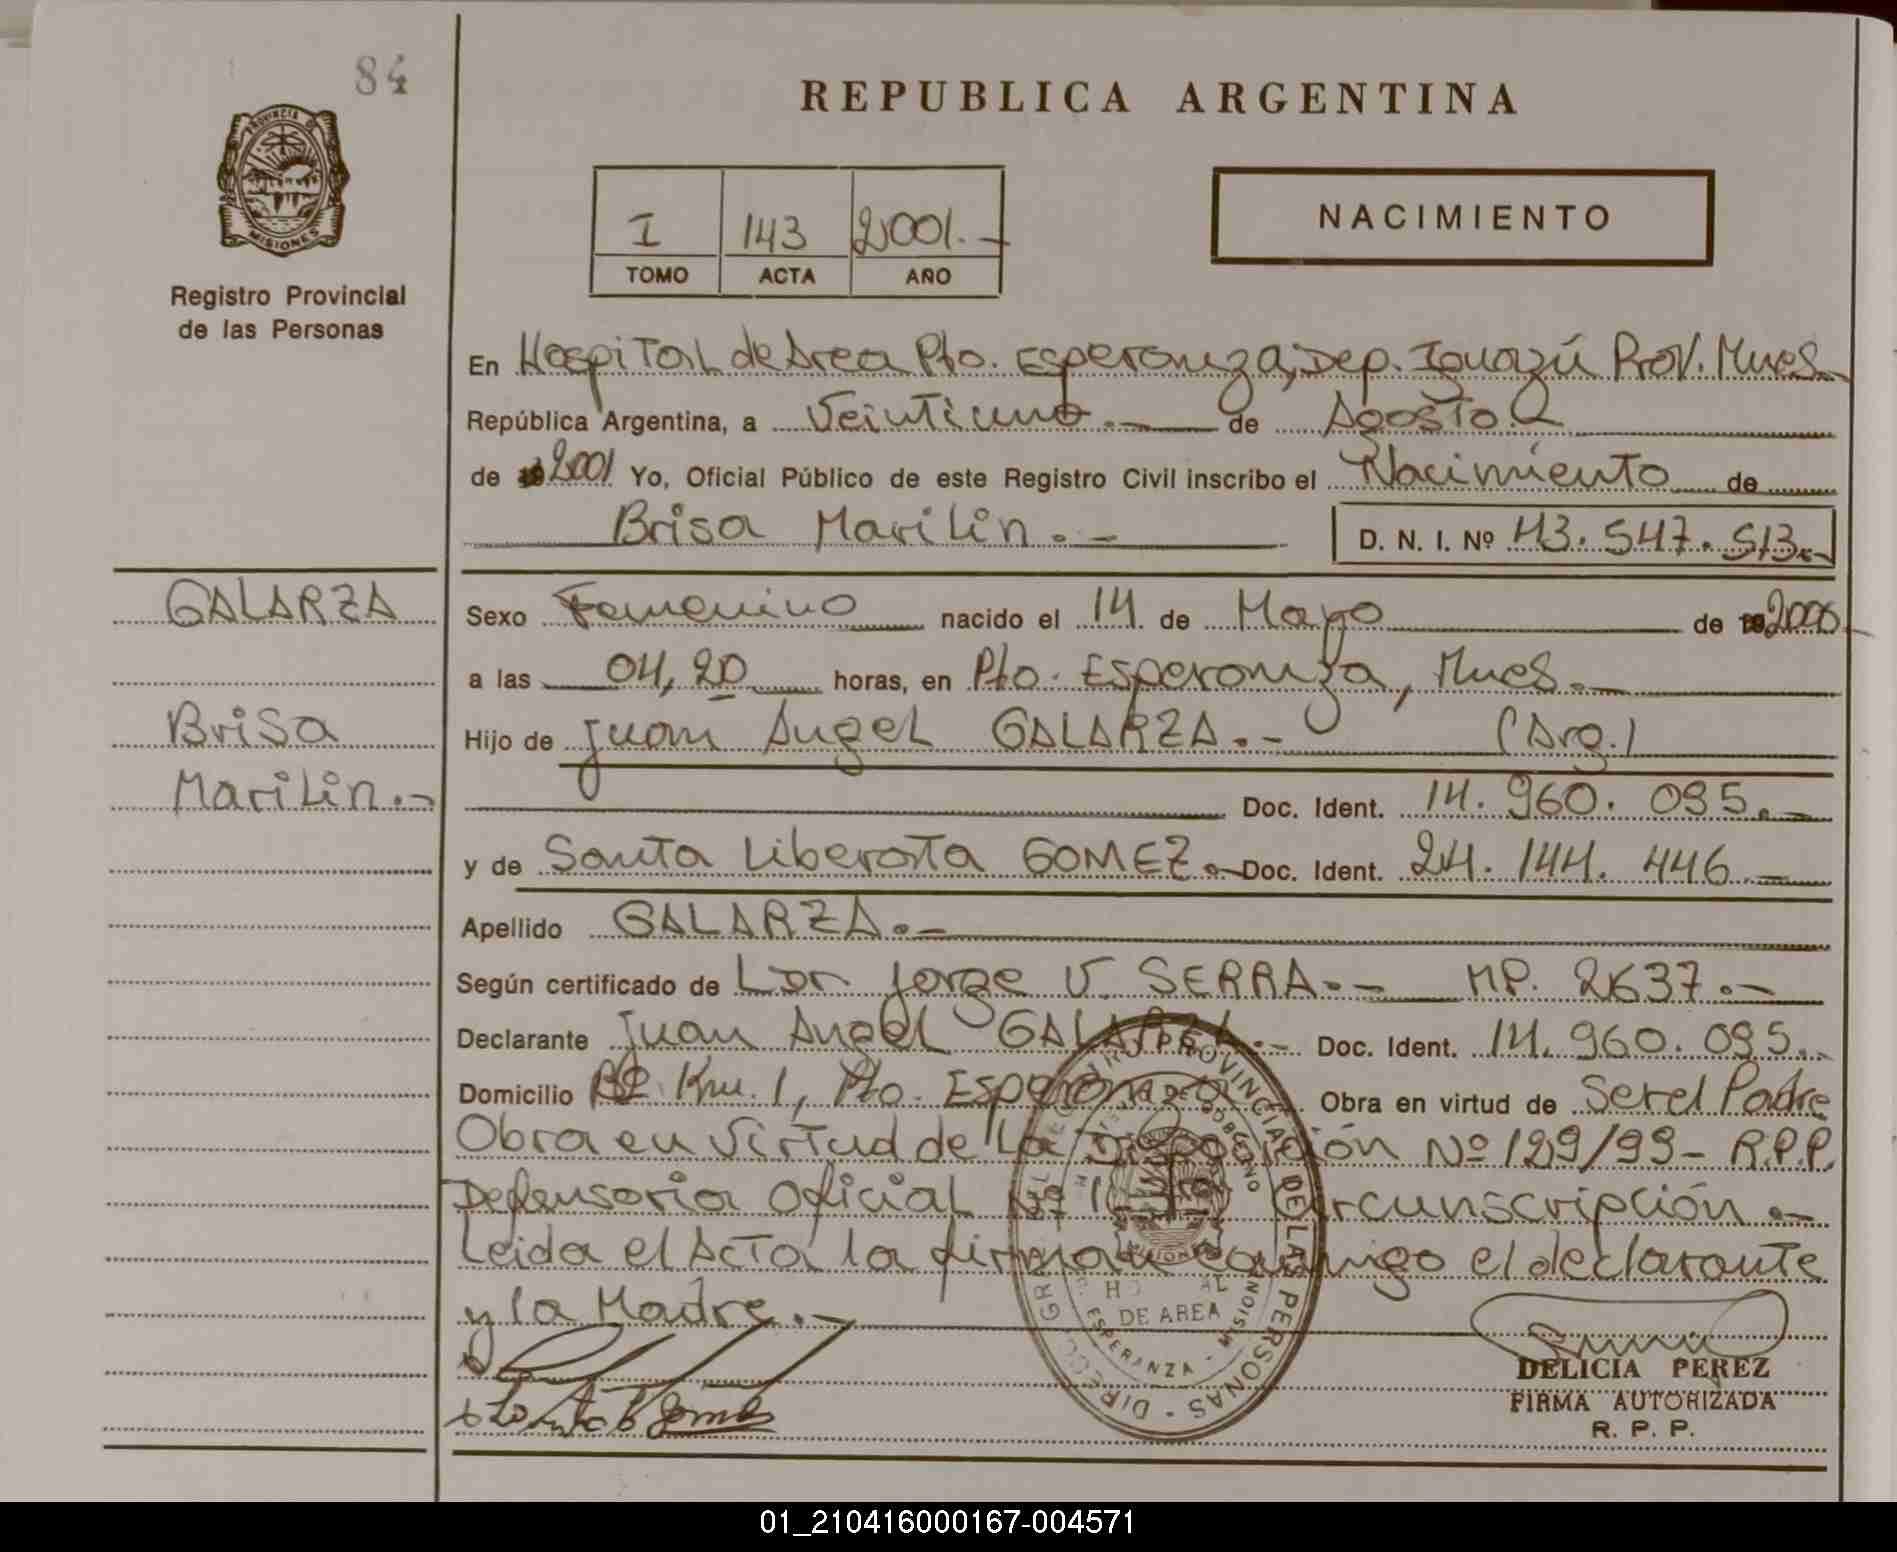 84
REPUBLICA ARGENTINA
PROVINCIA DE
MISIONES
Registro Provincial
de las Personas
I 143 2001.-
TOMO ACTA AÑO
NACIMIENTO
En Hospital de Area Pto. Esperanza, Dep. Iguazú Prov. Mnes.
República Argentina, a Veintiuno.- de Agosto.
de 2001 Yo, Oficial Público de este Registro Civil inscribo el Nacimiento de
Brisa Marilin.- D. N. I. Nº 43.547.513.-
GALARZA
Brisa
Marilin.-
Sexo Femenino nacido el 14 de Mayo de 2000
a las 04,20 horas, en Pto. Esperanza, Mnes.-
Hijo de Juan Angel GALARZA.- (Arg.)
Doc. Ident. 14.960.095.-
y de Santa Liberata GOMEZ.- Doc. Ident. 24.144.446.-
Apellido GALARZA.-
Según certificado de Dr. Jorge V. SERRA.- MP. 2637.-
Declarante Juan Angel GALARZA.- Doc. Ident. 14.960.095.-
Domicilio Km. 1, Pto. Esperanza Obra en virtud de Ser el Padre
Obra en Virtud de La Disposición Nº 129/99- R.P.P.
Defensoria Oficial Nº 1 Circunscripción.-
Leida el Acta la firman conmigo el declarante
y la Madre.-
DIRECC GRAL DEL REGISTRO PROVINCIAL DE LAS PERSONAS
DE GOBIERNO
MISIONES
DE AREA
ESPERANZA - MISIONES
DELICIA PEREZ
FIRMA AUTORIZADA
R. P. P.
01_210416000167-004571